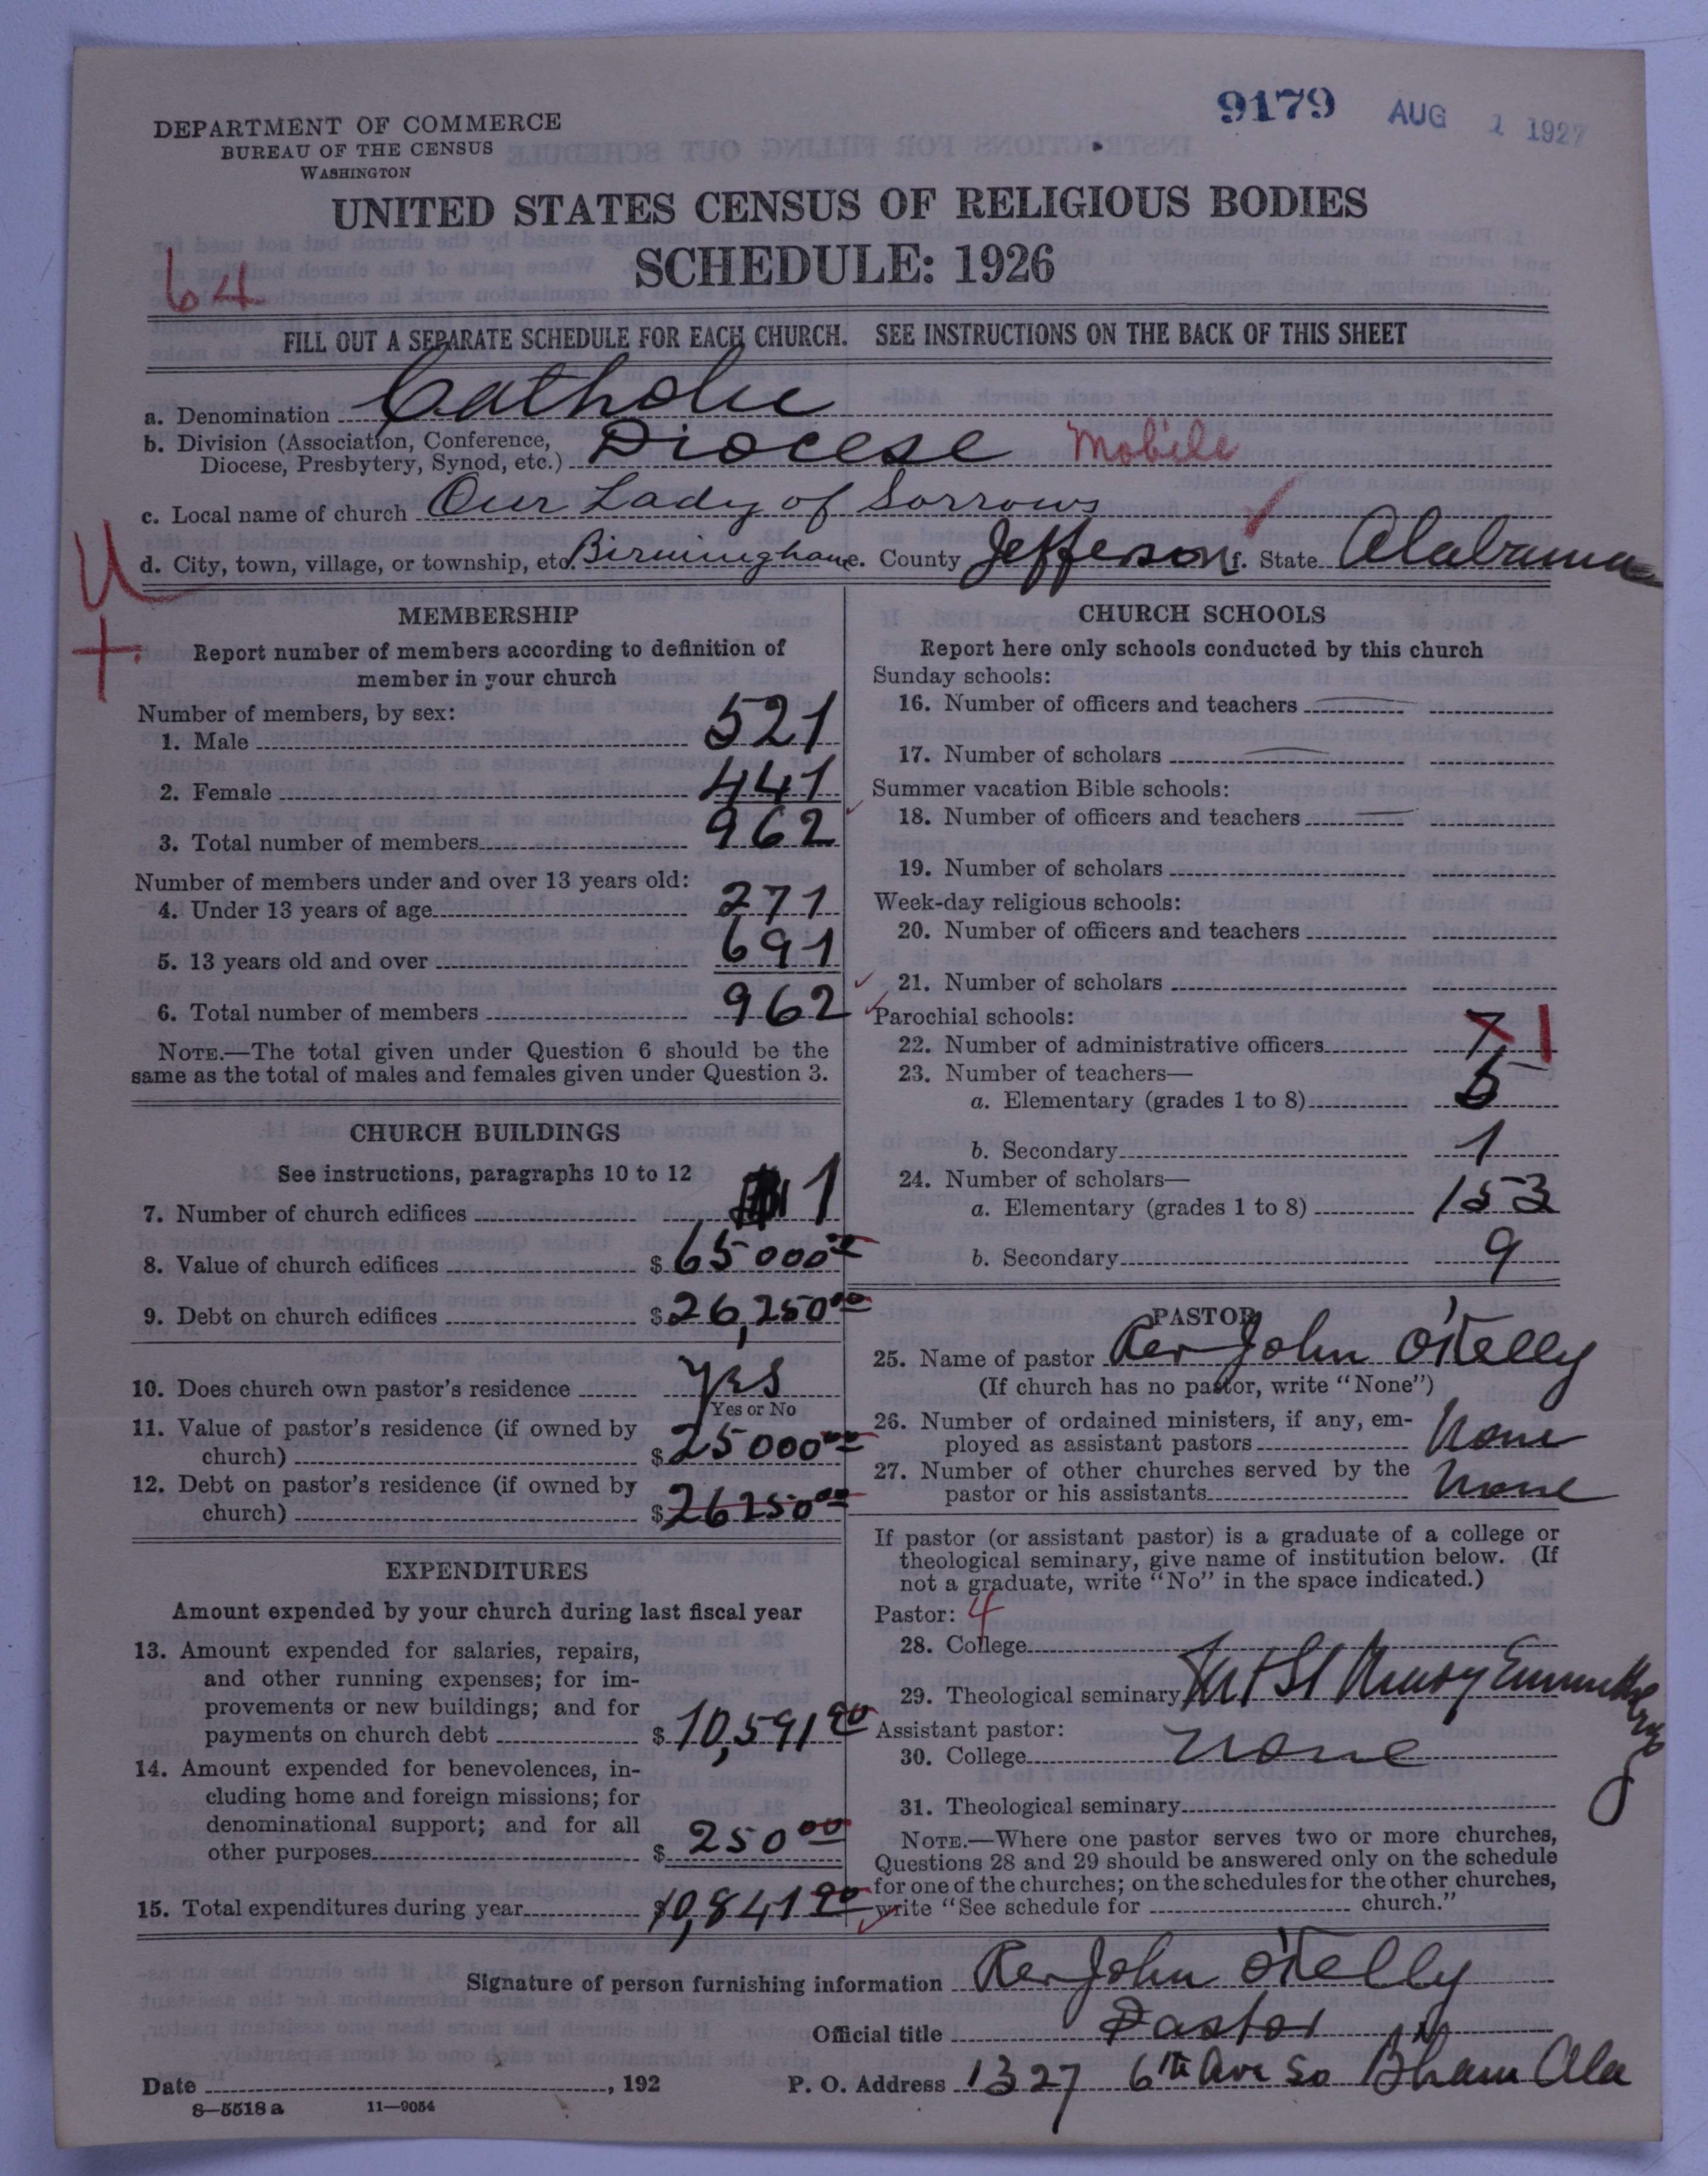 9179 AUG 1 1927
DEPARTMENT OF COMMERCE
BUREAU OF THE CENSUS
WASHINGTON
UNITED STATES CENSUS OF RELIGIOUS BODIES
SCHEDULE: 1926
64
FILL OUT A SEPARATE SCHEDULE FOR EACH CHURCH. SEE INSTRUCTIONS ON THE BACK OF THIS SHEET
a. Denomination Catholic
b. Division (Association, Conference,
Diocese, Presbytery, Synod, etc.) Diocese Mobile
c. Local name of church Our Lady of Sorrows
d. City, town, village, or township, etc. Birmingham e. County Jefferson f. State Alabama
U
+
MEMBERSHIP
Report number of members according to definition of
member in your church
Number of members, by sex:
1. Male 521
2. Female 441
3. Total number of members 962
Number of members under and over 13 years old:
4. Under 13 years of age 271
5. 13 years old and over 691
6. Total number of members 962
NOTE.—The total given under Question 6 should be the
same as the total of males and females given under Question 3.
CHURCH BUILDINGS
See instructions, paragraphs 10 to 12
7. Number of church edifices 1
8. Value of church edifices $65000 00
9. Debt on church edifices $26,250 00
10. Does church own pastor's residence Yes
Yes or No
11. Value of pastor's residence (if owned by
church) $25000 00
12. Debt on pastor's residence (if owned by
church) $26250 00
EXPENDITURES
Amount expended by your church during last fiscal year
13. Amount expended for salaries, repairs,
and other running expenses; for im-
provements or new buildings; and for
payments on church debt $10,591 90
14. Amount expended for benevolences, in-
cluding home and foreign missions; for
denominational support; and for all
other purposes $250 00
15. Total expenditures during year $10,841 90
CHURCH SCHOOLS
Report here only schools conducted by this church
Sunday schools:
16. Number of officers and teachers
17. Number of scholars
Summer vacation Bible schools:
18. Number of officers and teachers
19. Number of scholars
Week-day religious schools:
20. Number of officers and teachers
21. Number of scholars
Parochial schools:
22. Number of administrative officers 7 1
23. Number of teachers—
a. Elementary (grades 1 to 8) 6
b. Secondary 1
24. Number of scholars—
a. Elementary (grades 1 to 8) 153
b. Secondary 9
PASTOR
25. Name of pastor Rev John O'Kelly
(If church has no pastor, write "None")
26. Number of ordained ministers, if any, em-
ployed as assistant pastors None
27. Number of other churches served by the
pastor or his assistants None
If pastor (or assistant pastor) is a graduate of a college or
theological seminary, give name of institution below. (If
not a graduate, write "No" in the space indicated.)
Pastor: 4
28. College
29. Theological seminary Mt St Marys Emmitsburg
Assistant pastor:
30. College None
31. Theological seminary
NOTE.—Where one pastor serves two or more churches,
Questions 28 and 29 should be answered only on the schedule
for one of the churches; on the schedules for the other churches,
write "See schedule for church."
Signature of person furnishing information Rev John O'Kelly
Official title Pastor
Date , 192 P. O. Address 1327 6th Ave So Bham Ala
8—5518 a 11—9054